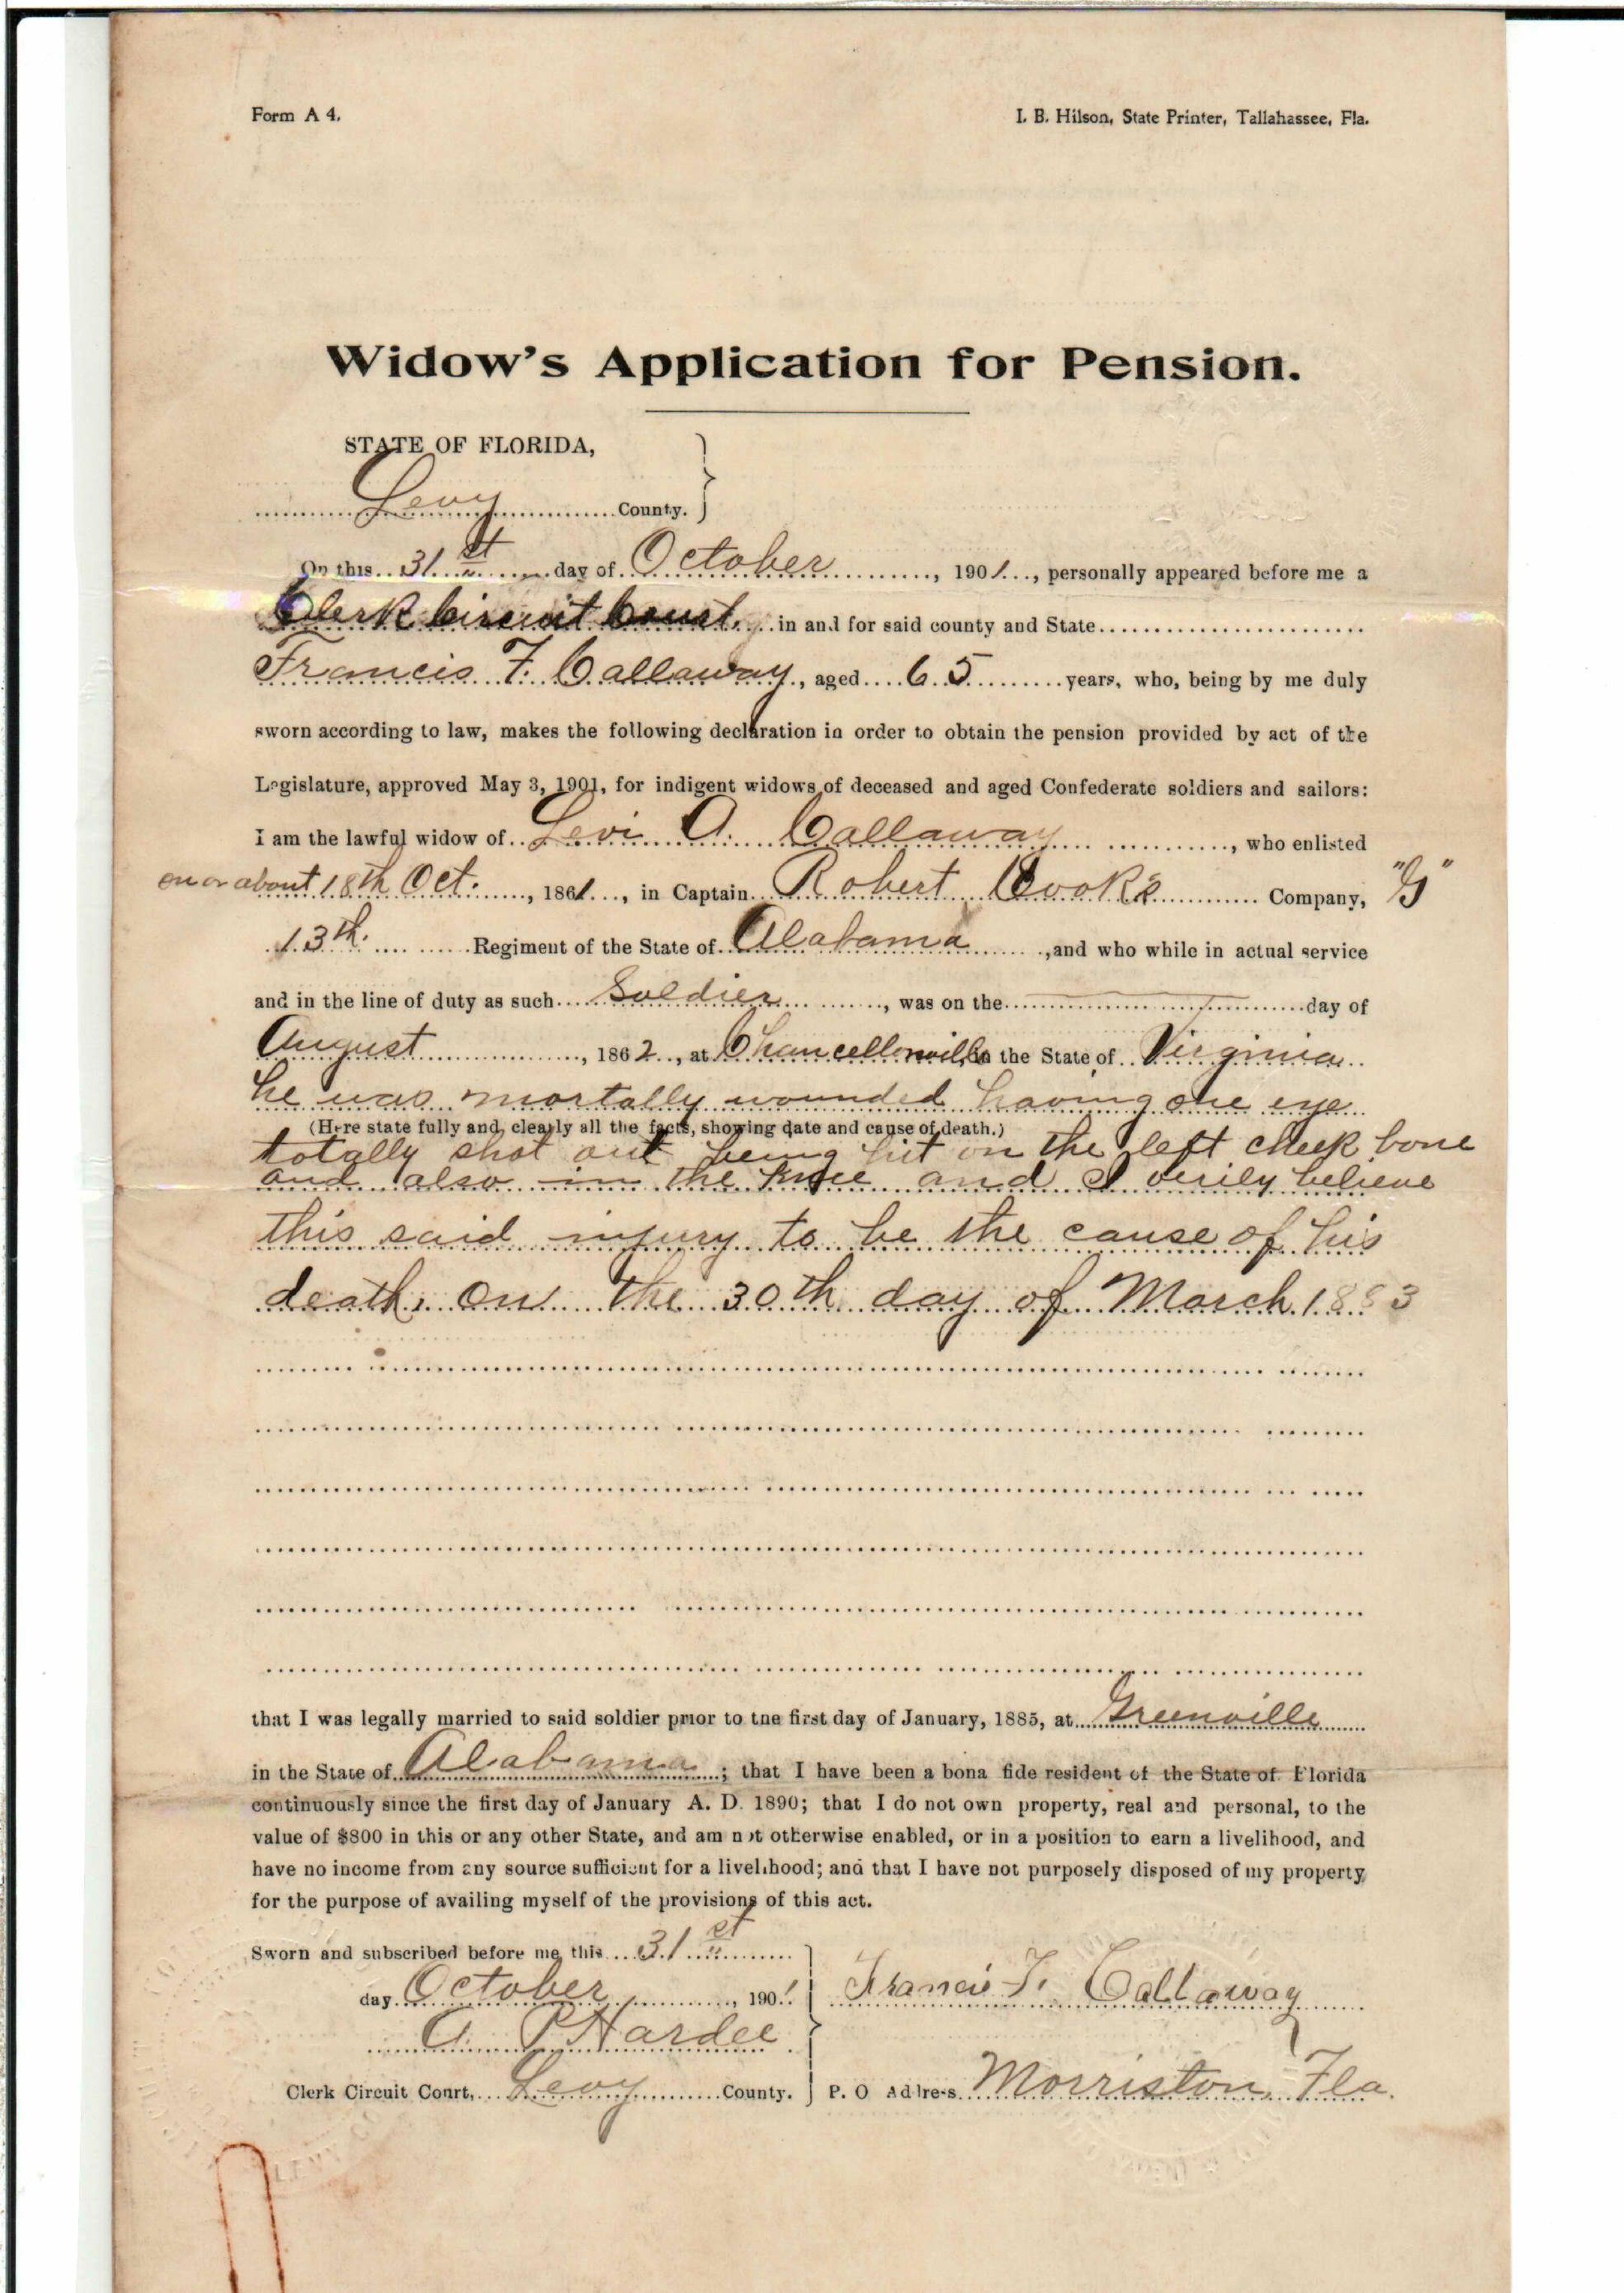 Form A 4.
I. B. Hilson, State Printer, Tallahassee, Fla.
Widow's Application for Pension.
STATE OF FLORIDA,
Levy County.
On this 31st day of October, 1901, personally appeared before me a
Clerk Circuit Court in and for said county and State
Francis F. Callaway, aged 65 years, who, being by me duly
sworn according to law, makes the following declaration in order to obtain the pension provided by act of the
Legislature, approved May 3, 1901, for indigent widows of deceased and aged Confederate soldiers and sailors:
I am the lawful widow of Levi A. Callaway, who enlisted
on or about 18th Oct., 1861, in Captain Robert Cook's Company, "G"
13th. Regiment of the State of Alabama, and who while in actual service
and in the line of duty as such Soldier, was on the day of
August, 1862, at Chancellorville in the State of Virginia
he was mortally wounded having one eye
(Here state fully and clearly all the facts, showing date and cause of death.)
totally shot out being hit on the left cheek bone
and also in the knee and I verily believe
this said injury to be the cause of his
death. On the 30th day of March 1883
that I was legally married to said soldier prior to the first day of January, 1885, at Greenville
in the State of Alabama; that I have been a bona fide resident of the State of Florida
continuously since the first day of January A. D. 1890; that I do not own property, real and personal, to the
value of $800 in this or any other State, and am not otherwise enabled, or in a position to earn a livelihood, and
have no income from any source sufficient for a livelihood; and that I have not purposely disposed of my property
for the purpose of availing myself of the provisions of this act.
Sworn and subscribed before me this 31st
day October, 1901
Francis F. Callaway
A P Hardee
Clerk Circuit Court, Levy County.
P. O Address Morriston, Fla.